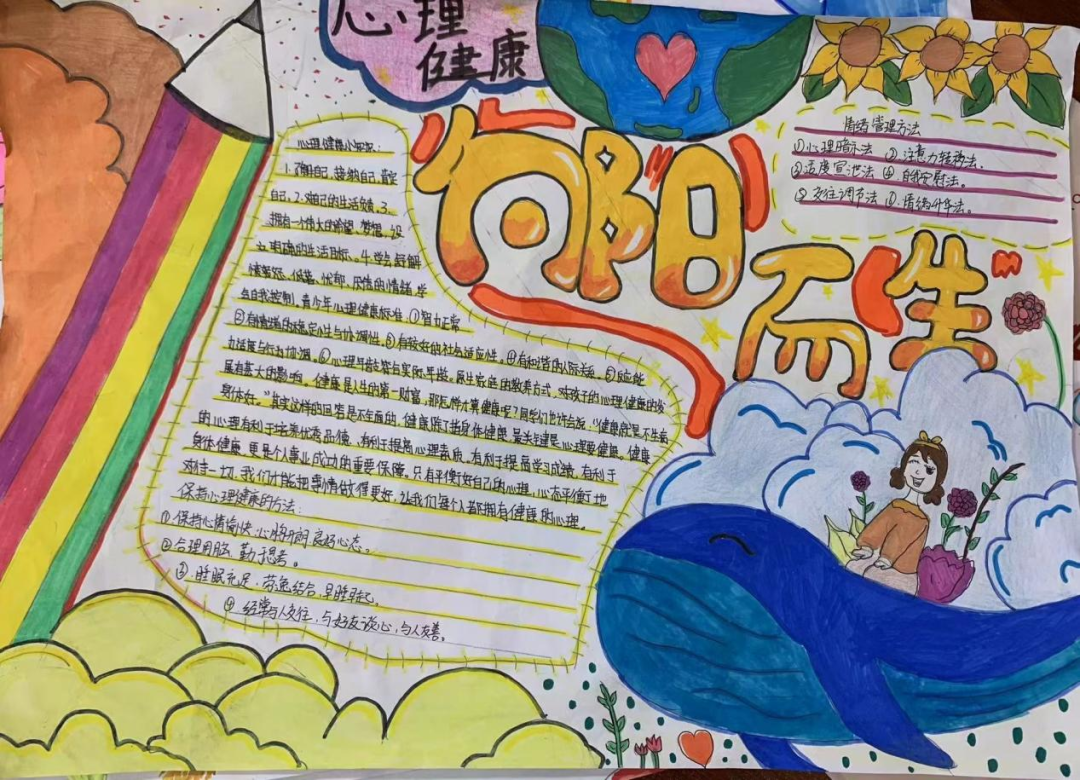 心理
健康
向阳
而生
心理健康小知识:
1.了解自己、接纳自己、肯定
自己。2.对自己的生活负责。3.
拥有一个伟大的希望、梦想,设
立明确的生活目标。4.学会纾解
情绪怒、低落、忧郁、厌倦的情绪,学
会自我控制。青少年心理健康标准:①智力正常
②有情绪的稳定性与协调性。③有较好的社会适应性。④有和谐的人际关系。⑤反应能
力适度与行为协调。⑥心理年龄符合实际年龄。原生家庭的教养方式,对孩子的心理健康的发
展有莫大的影响。健康是人生的第一财富,那怎样才算健康呢?同学们也许会说:“健康就是不生病
身体好。”其实这样的回答是不全面的,健康既了指身体健康,最关键是心理要健康。健康
的心理有利于培养优秀品德、有利于提高心理素质、有利于提高学习成绩、有利于
身体健康,更是个人事业成功的重要保障。只有平衡好自己的心理,心态平衡地
对待一切,我们才能把事情做得更好,让我们每个人都拥有健康的心理。
保持心理健康的方法:
①保持心情愉快,心胸开阔,良好心态。
②合理用脑、勤于思考。
③睡眠充足,劳逸结合,早睡早起。
④经常与人交往,与好友谈心,与人友善。
情绪管理方法
①心理暗示法 ②注意力转移法.
③适度宣泄法 ④自我安慰法。
⑤交往调节法 ⑥情绪升华法。